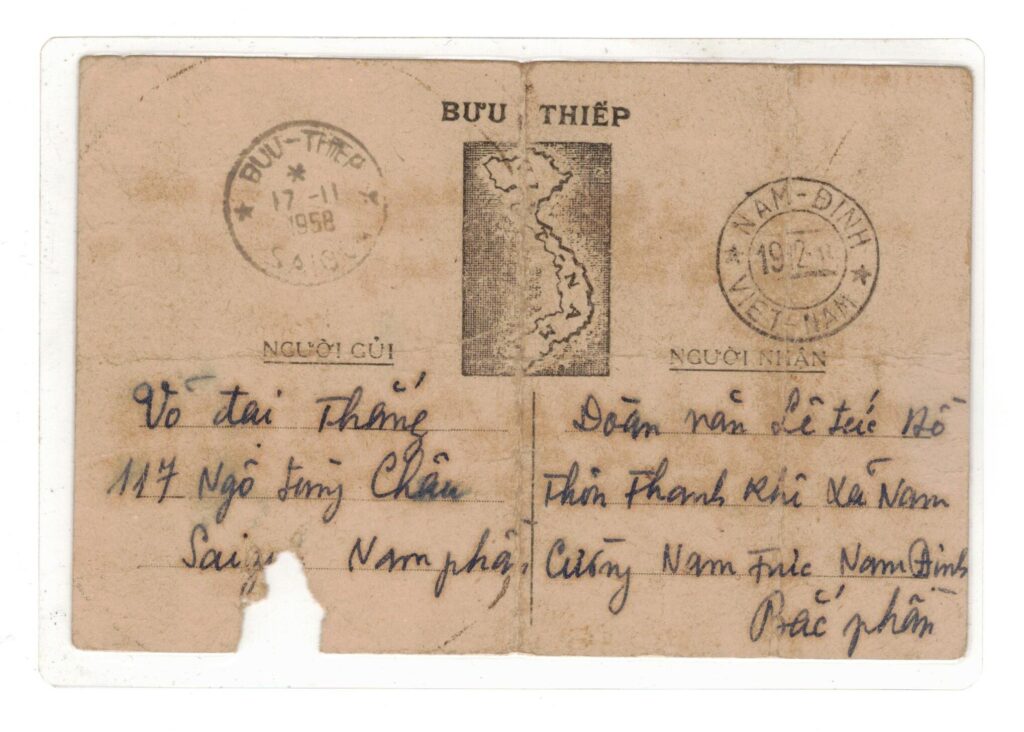 BƯU THIẾP
BUU-THIEP
17-11
1958
SAIGO
VIET NAM
NAM-ĐINH
19 12
VIET-NAM
NGƯỜI GỬI
Võ đai Thắng
117 Ngô Tùng Châu
Saigon Nam phần
NGƯỜI NHẬN
Đoàn văn Lê tức Bồ
Thôn Thanh Khê Xã Nam
Cường Nam Trực Nam Định
Bắc phần